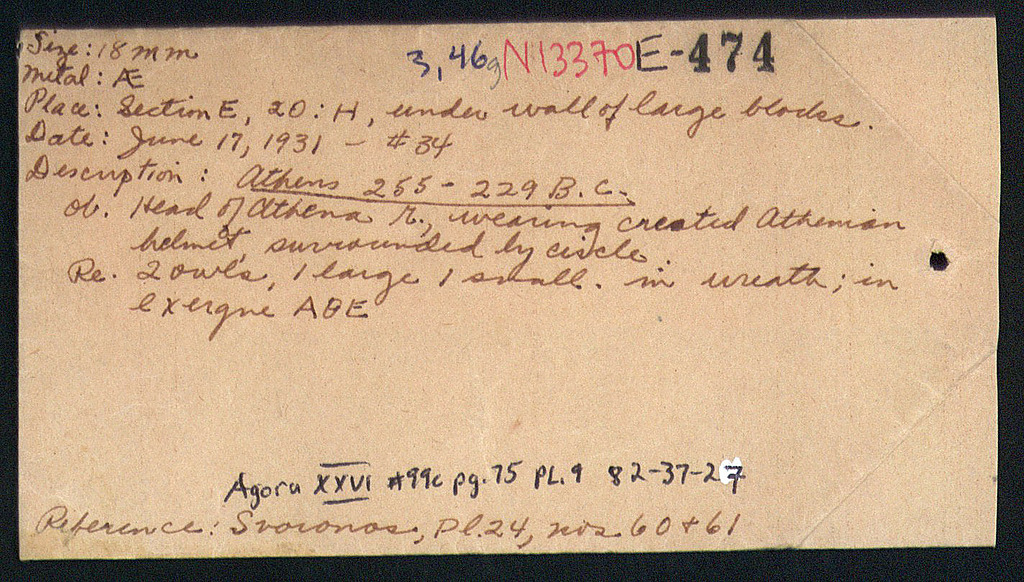 Size: 18 mm
3,46g N13370 E-474
Metal: Æ
Place: Section E, 20 : H, under wall of large blocks.
Date: June 17, 1931 - #34
Description: Athens 255-229 B.C.
Ob. Head of Athena r., wearing crested Athenian
helmet, surrounded by circle.
Re. 2 owls, 1 large 1 small. in wreath; in
exergue ΑΘΕ
Agora XXVI #99c pg.75 PL.9 82-37-27
Reference: Svoronos, Pl.24, nos 60+61